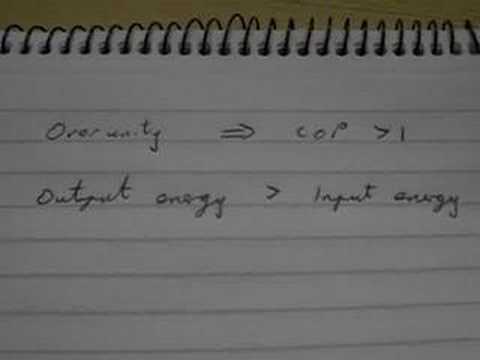 Overunity ⇒ COP > 1
Output energy > Input energy